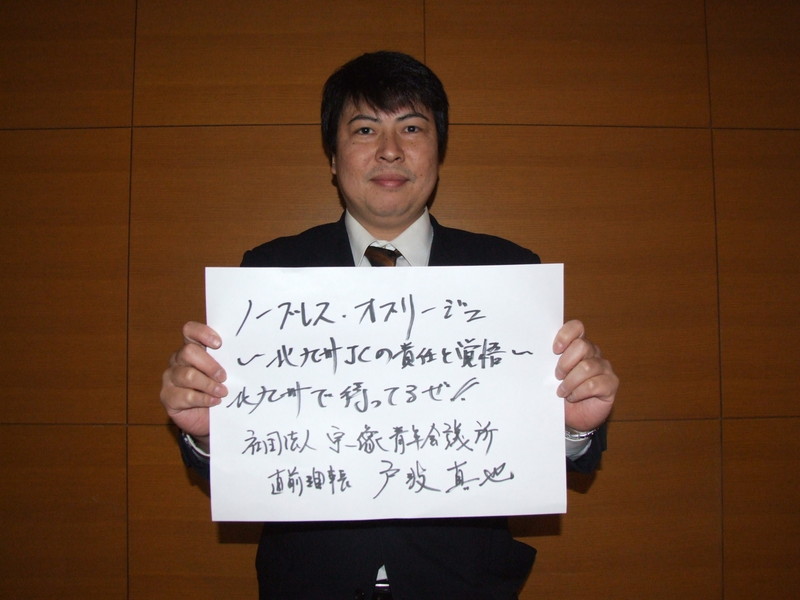 ノーブレス・オブリージュ
～北九州JCの責任と覚悟～
北九州で待ってるぜ!!
社団法人 宗像青年会議所
直前理事長 戸波真也